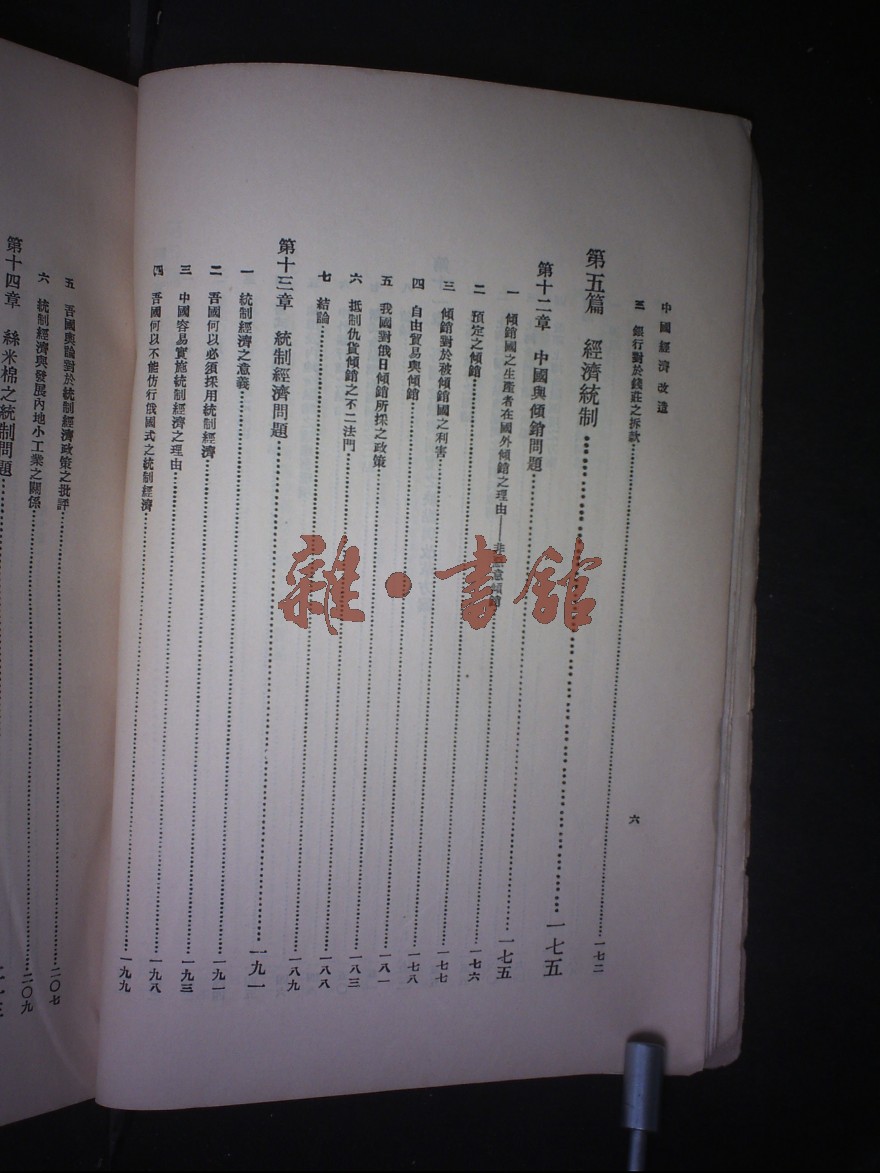 中國經濟改造 六
三 銀行對於錢莊之拆款 一七二
第五篇 經濟統制 一七五
第十二章 中國與傾銷問題 一七五
一 傾銷國之生產者在國外傾銷之理由——非意傾銷 一七六
二 預定之傾銷 一七七
三 傾銷對於被傾銷國之利害 一七八
四 自由貿易與傾銷 一八一
五 我國對俄日傾銷所採之政策 一八三
六 抵制仇貨傾銷之不二法門 一八八
七 結論 一八九
第十三章 統制經濟問題 一九一
一 統制經濟之意義 一九一
二 吾國何以必須採用統制經濟 一九三
三 中國容易實施統制經濟之理由 一九八
四 吾國何以不能仿行俄國式之統制經濟 一九九
五 吾國輿論對於統制經濟政策之批評 二〇七
六 統制經濟與發展內地小工業之關係 二〇九
第十四章 絲米棉之統制問題
雜·書館